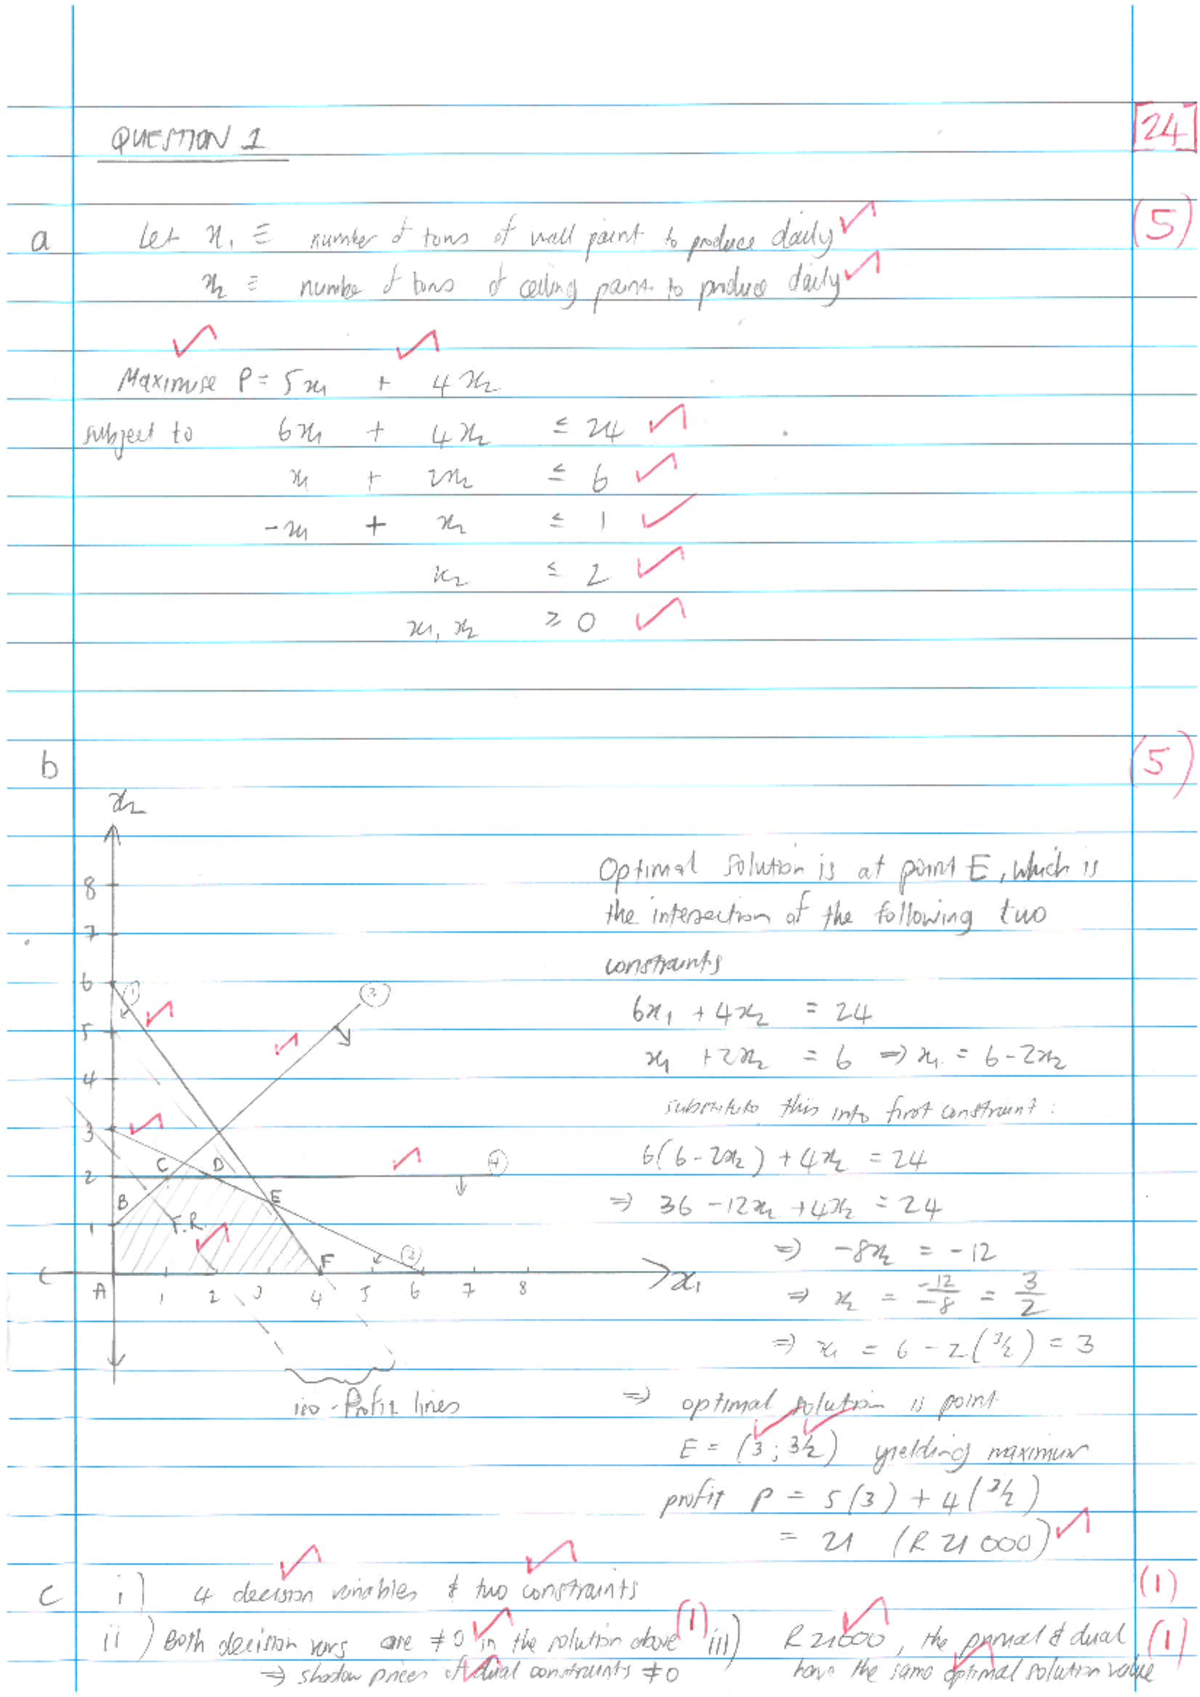 QUESTION 1
[24]
a Let x₁ ≡ number of tons of wall paint to produce daily (5)
x₂ ≡ number of tons of ceiling paint to produce daily
Maximise P = 5x₁ + 4x₂
subject to 6x₁ + 4x₂ ≤ 24
x₁ + 2x₂ ≤ 6
-x₁ + x₂ ≤ 1
x₂ ≤ 2
x₁, x₂ ≥ 0
b (5)
x₂
8
7
6
5
4
3
2
1
① ③ ④ ②
A B C D E F
F.R.
1 2 3 4 5 6 7 8 x₁
iso-Profit lines
Optimal solution is at point E, which is
the intersection of the following two
constraints
6x₁ + 4x₂ = 24
x₁ + 2x₂ = 6 ⇒ x₁ = 6 - 2x₂
substitute this into first constraint:
6(6 - 2x₂) + 4x₂ = 24
⇒ 36 - 12x₂ + 4x₂ = 24
⇒ -8x₂ = -12
⇒ x₂ = -12/-8 = 3/2
⇒ x₁ = 6 - 2(3/2) = 3
⇒ optimal solution is point
E = (3; 3/2) yielding maximum
profit P = 5(3) + 4(3/2)
= 21 (R 21 000)
c i) 4 decision variables & two constraints (1)
ii) Both decision vars are ≠ 0 in the solution above (1)
⇒ shadow prices of dual constraints ≠ 0
iii) R 21000, the primal & dual (1)
have the same optimal solution value